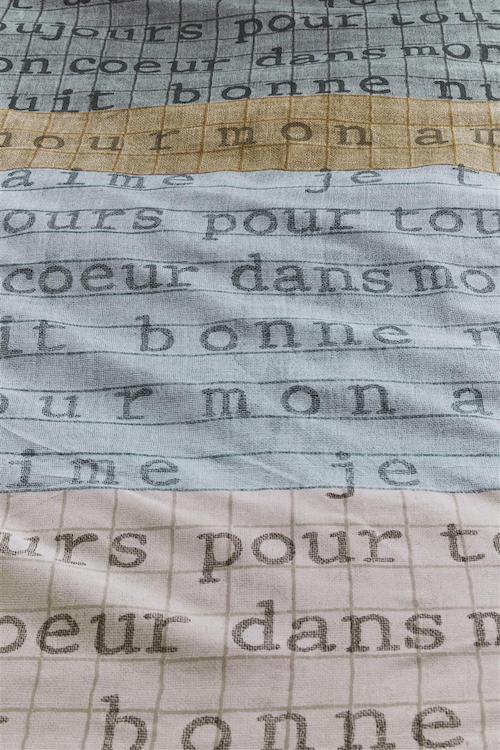 oujours pour tou
on coeur dans mon
uit bonne nu
mour mon am
aime je t
ours pour tou
coeur dans mo
it bonne n
our mon a
ime je
urs pour to
oeur dans m
bonne